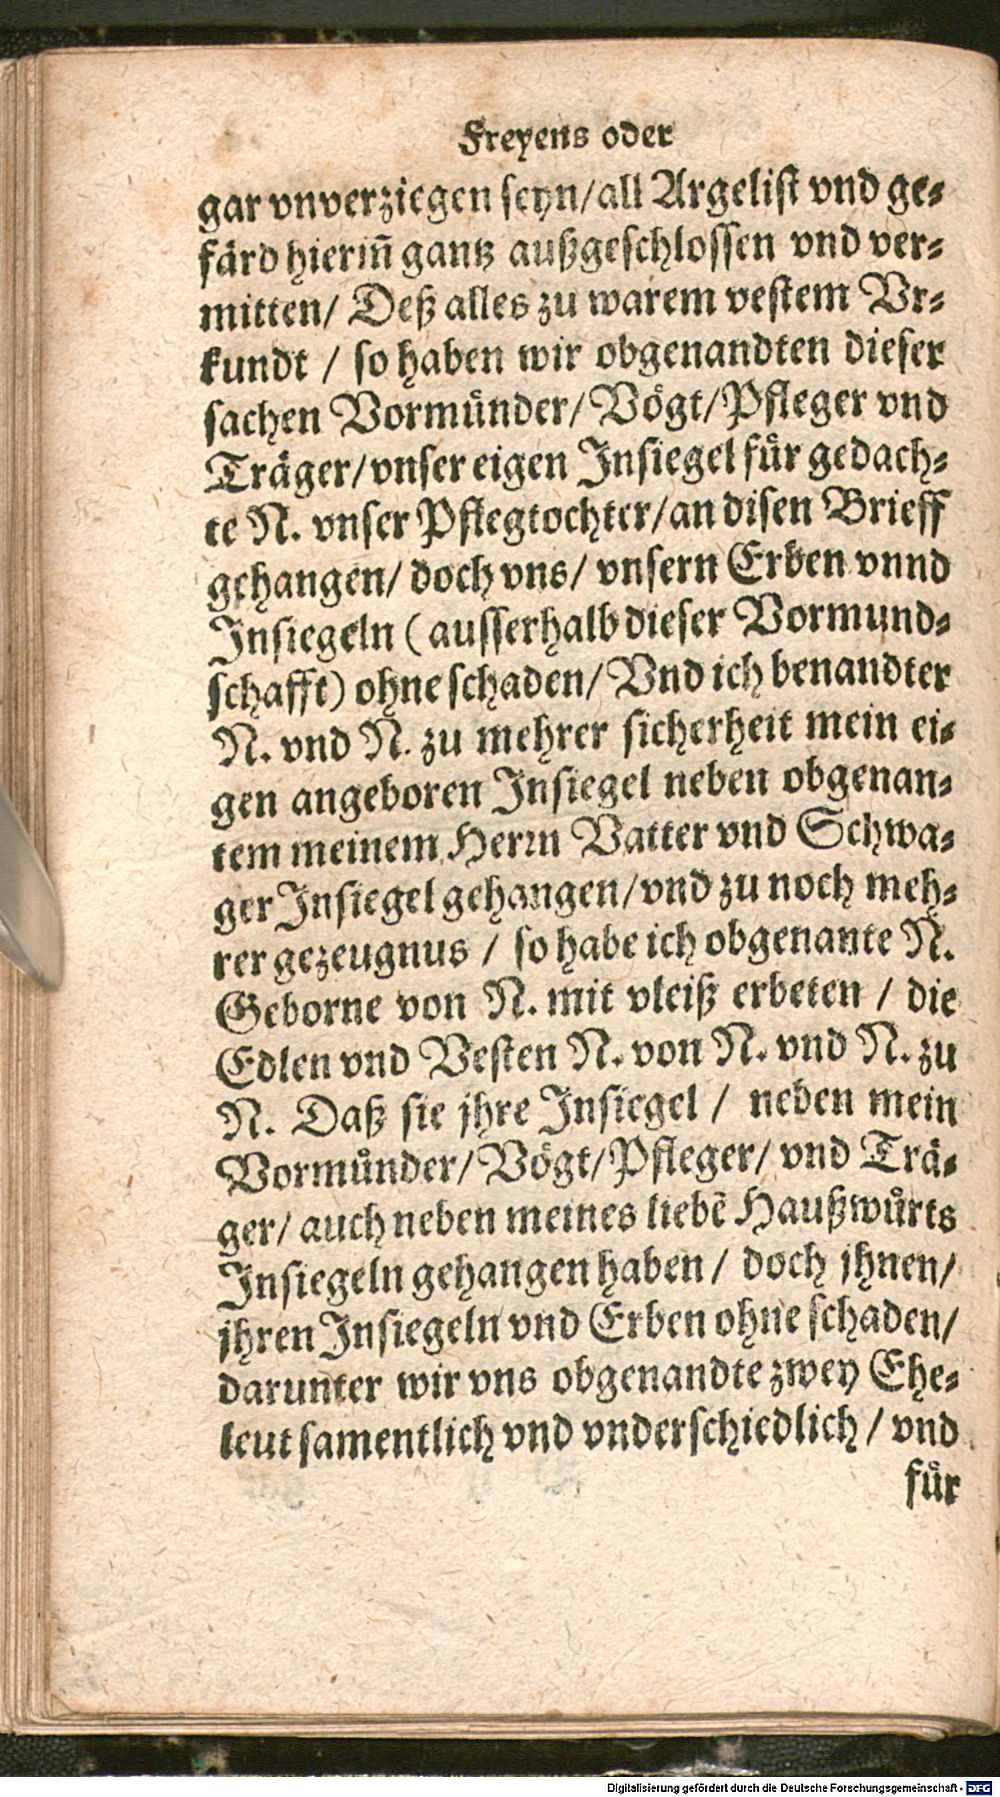 Freyens oder
gar vnverziegen seyn/all Argelist vnd ge-
färd hierin̄ gantz außgeschlossen vnd ver-
mitten/ Deß alles zu warem vestem Vr-
kundt / so haben wir obgenandten dieser
sachen Vormuͤnder/Voͤgt/Pfleger vnd
Traͤger/vnser eigen Insiegel fuͤr gedach-
te N. vnser Pflegtochter/an disen Brieff
gehangen/ doch vns/ vnsern Erben vnnd
Insiegeln (ausserhalb dieser Vormund-
schafft) ohne schaden/ Vnd ich benandter
N. vnd N. zu mehrer sicherheit mein ei-
gen angeboren Insiegel neben obgenan-
tem meinem Herrn Vatter vnd Schwa-
ger Insiegel gehangen/vnd zu noch meh-
rer gezeugnus / so habe ich obgenante N.
Geborne von N. mit vleiß erbeten / die
Edlen vnd Vesten N. von N. vnd N. zu
N. Daß sie jhre Insiegel / neben mein
Vormuͤnder/Voͤgt/Pfleger/ vnd Traͤ-
ger/ auch neben meines liebē Haußwuͤrts
Insiegeln gehangen haben / doch jhnen/
jhren Insiegeln vnd Erben ohne schaden/
darunter wir vns obgenandte zwey Ehe-
leut samentlich vnd vnderschiedlich / vnd
fuͤr
Digitalisierung gefördert durch die Deutsche Forschungsgemeinschaft - DFG